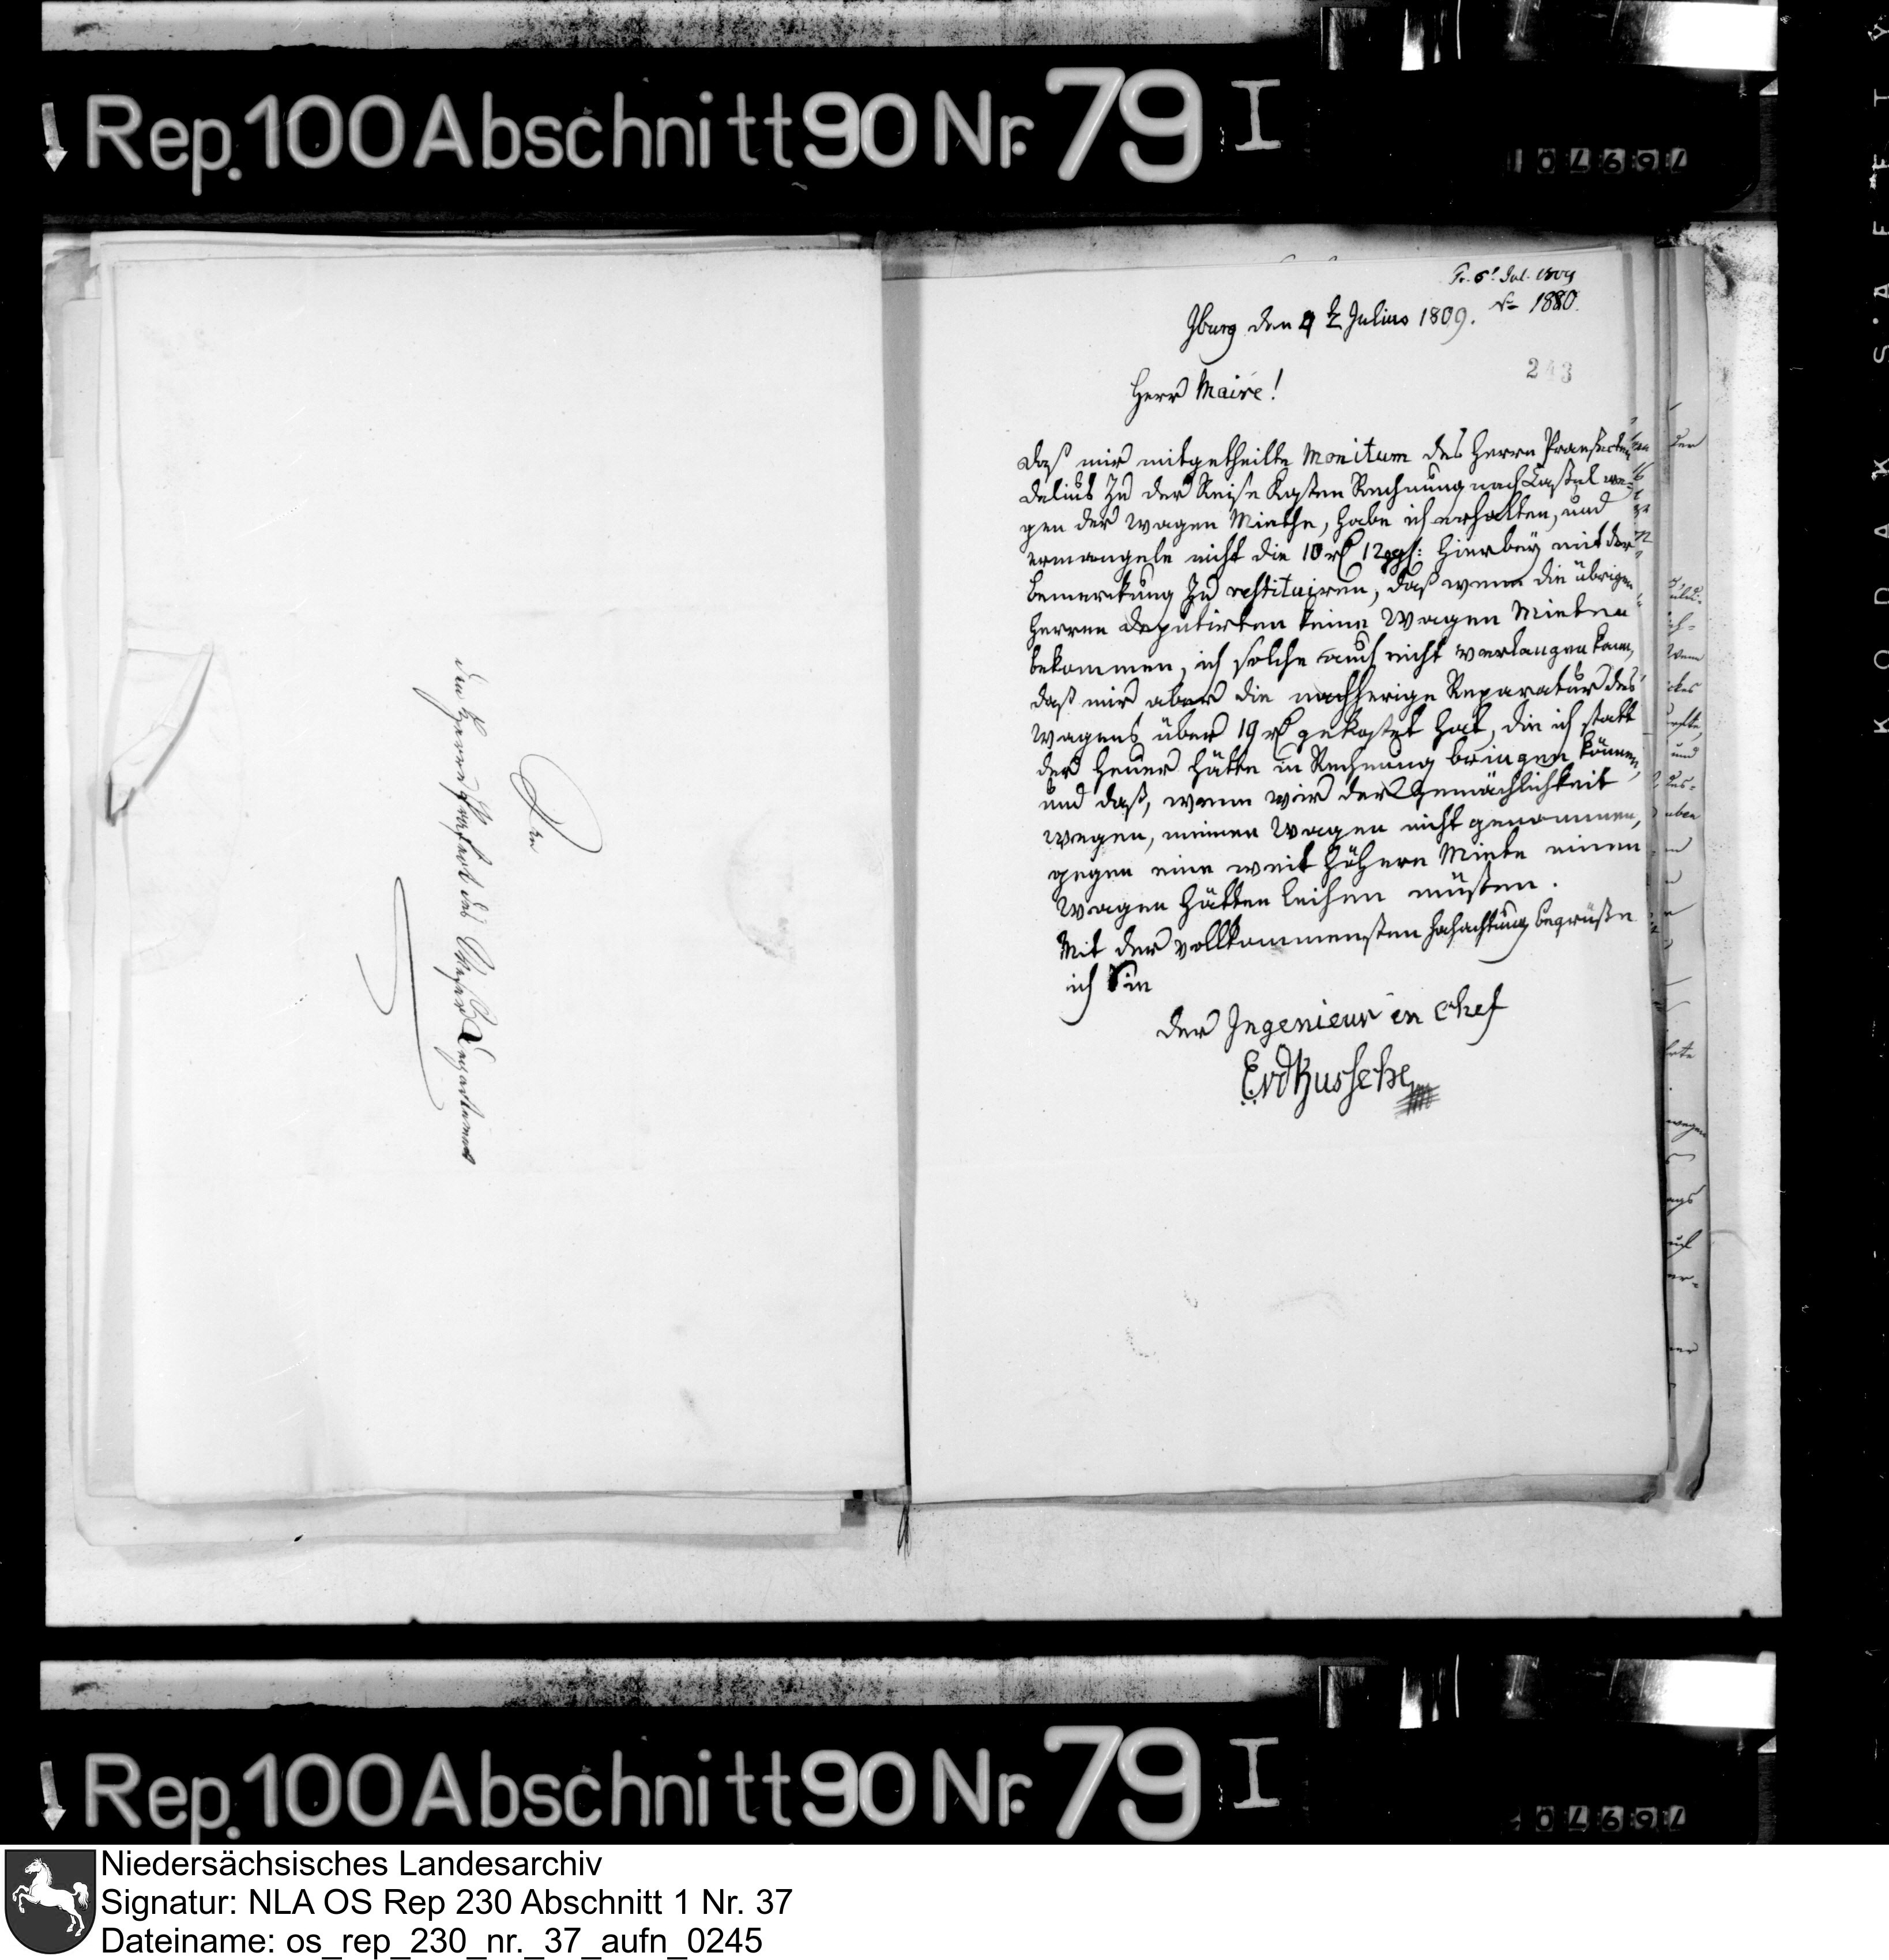 Rep. 100 Abschnitt 90 Nr. 79 I
An
den Herrn Präfect des Weser Departements
Pr. 6t Jul. 1809
No 1880.
Iburg den 4t Julius 1809.
243
Herr Maire!
Daß mir mitgetheilte Monitum des Herrn Praefecten
Delius zu der Reise Kosten Rechnung nach Caßel we-
gen der Wagen Miethe, habe ich erhalten, und
ermangele nicht die 10 rt 12 ggl: hierbey mit der
Bemerkung zu restituiren, daß wenn die übrigen
Herren Deputirten keine Wagen Miethe
bekommen, ich solche auch nicht verlangen kann,
daß mir aber die nachherige Reparatur des
Wagens über 19 rt gekostet hat, die ich statt
der Heuer hätte in Rechnung bringen können,
und daß, wenn wir der Gemächlichkeit
wegen, meinen Wagen nicht genommen,
gegen eine weit höhere Miete einen
Wagen hätten leihen müßen.
Mit der vollkommensten Hochachtung begrüße
ich Sie
Der Ingenieur en Chef
Rep. 100 Abschnitt 90 Nr. 79 I
KODAK · SAFETY
Niedersächsisches Landesarchiv
Signatur: NLA OS Rep 230 Abschnitt 1 Nr. 37
Dateiname: os_rep_230_nr._37_aufn_0245